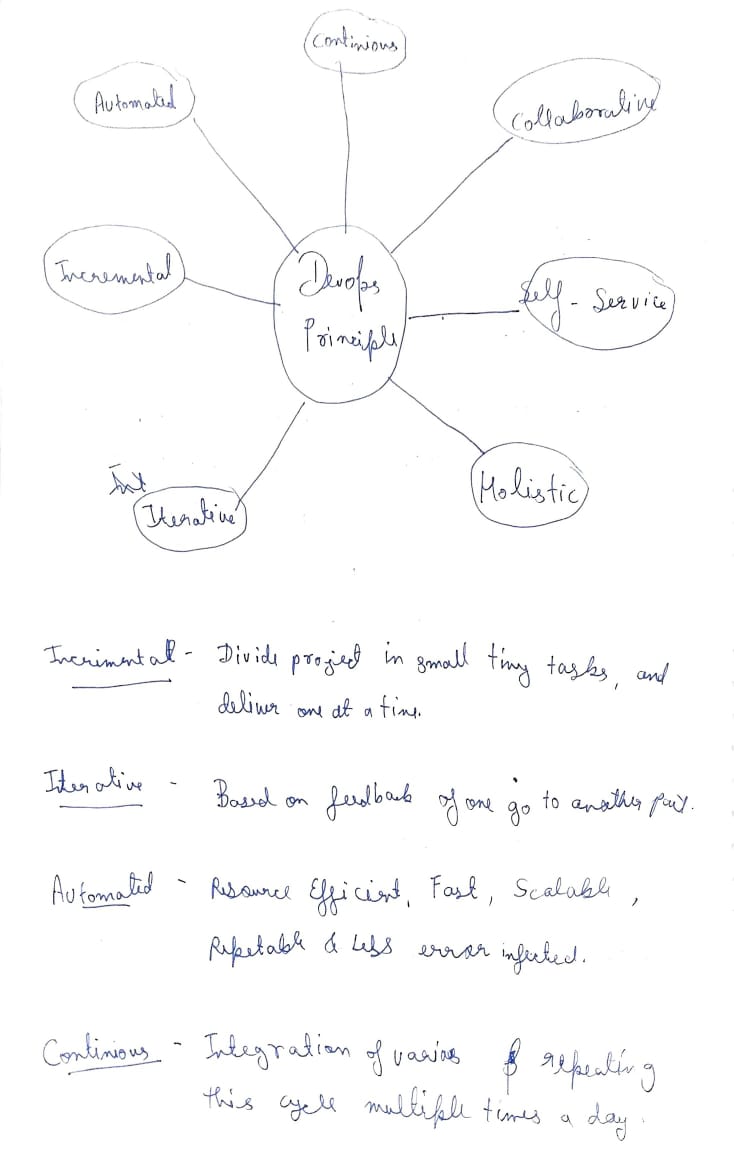 Continious
Automated
Collaborative
Incremental
Devops
Principle
Self - Service
Int
Iterative
Holistic
Incrimental - Divide project in small tiny tasks, and
deliver one at a time.
Iterative - Based on feedback of one go to another part.
Automated - Resource Efficient, Fast, Scalable,
Repetable & Less error infected.
Continious - Integration of varios & repeating
this cycle multiple times a day.